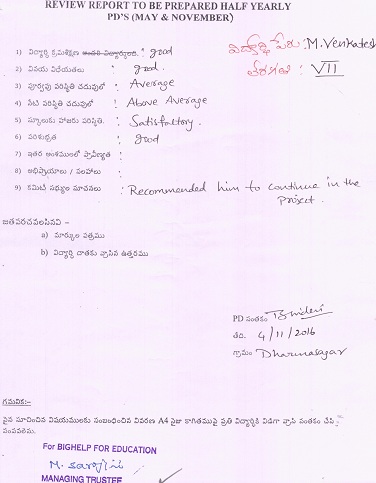 REVIEW REPORT TO BE PREPARED HALF YEARLY
PD'S (MAY & NOVEMBER)
విద్యార్థి పేరు: M.Venkatesh
తరగతి : VII
1) విద్యార్థి క్రమశిక్షణ : good
2) విషయ విధేయతలు : good.
3) పూర్వపు పరిస్థితి చదువులో : Average
4) నేటి పరిస్థితి చదువులో : Above Average
5) స్కూలుకు హాజరు పరిస్థితి. : Satisfactory.
6) పరిశుభ్రత : good
7) ఇతర అంశములలో ప్రావీణ్యత :
8) అభిప్రాయాలు / సలహాలు :
9) కమిటీ సభ్యుల సూచనలు : Recommended him to continue in the
Project.
జతపరచవలసినవి –
a) మార్కుల పత్రము
b) విద్యార్థి దాతకు వ్రాసిన ఉత్తరము
PD సంతకం
తేది. 4/11/2016
గ్రామం: Dharmasagar
గమనిక:-
పైన సూచించిన విషయములకు సంబంధించిన వివరణ A4 సైజు కాగితముపై ప్రతి విద్యార్థికి విడిగా వ్రాసి సంతకం చేసి
పంపవలెను.
For BIGHELP FOR EDUCATION
M. Sarojini
MANAGING TRUSTEE